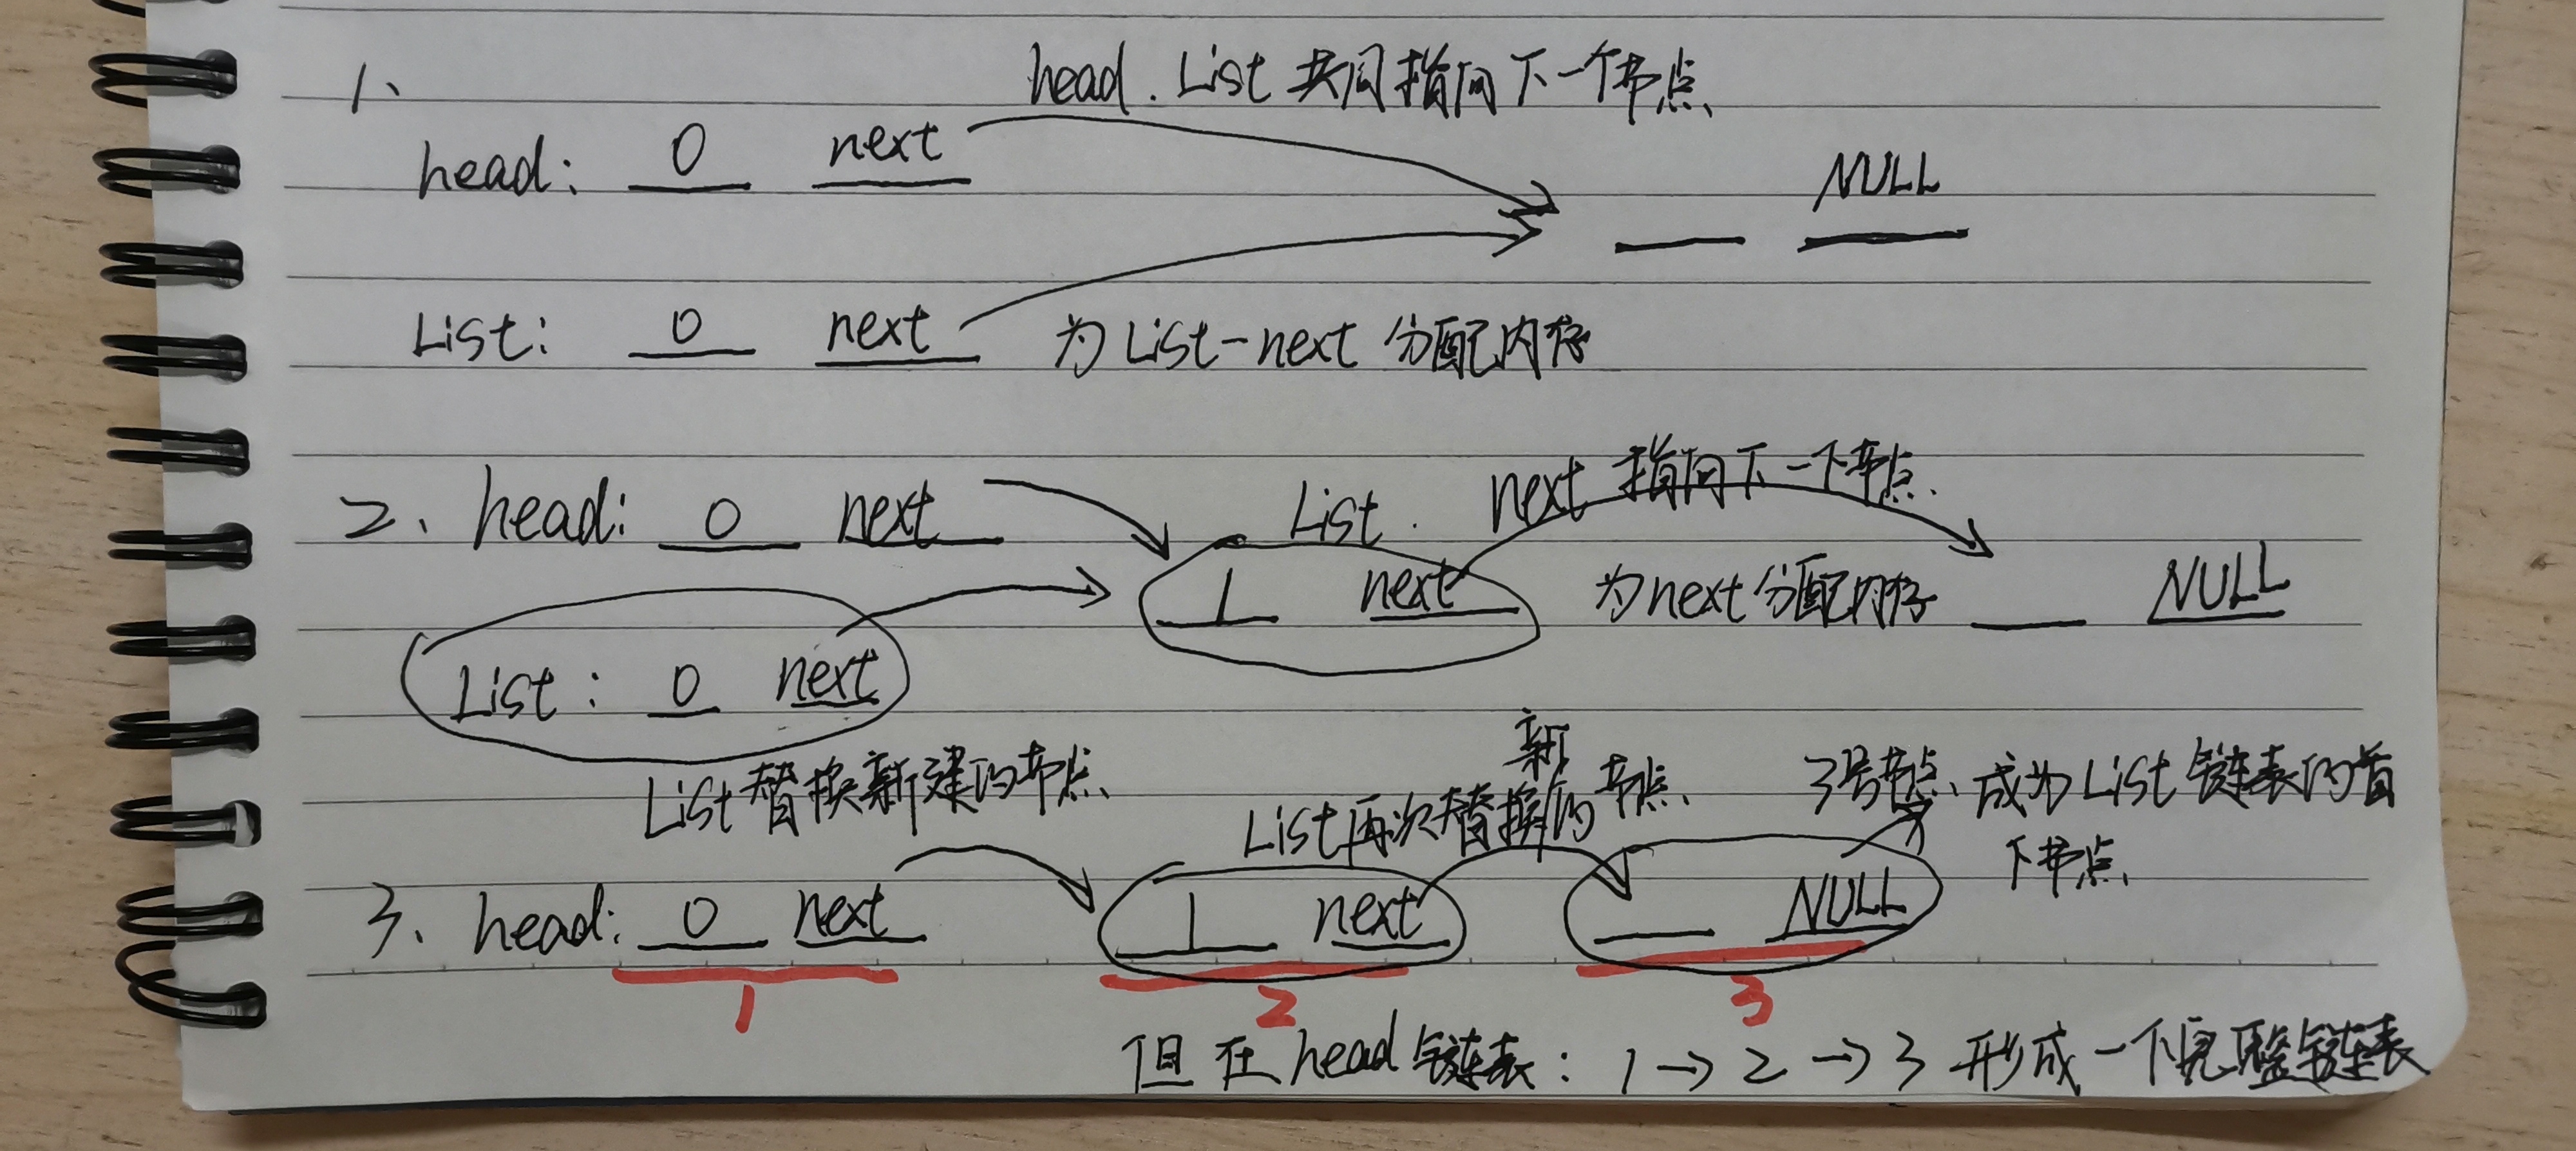 1、
head. List 共同指向下一个节点
head: 0 next
NULL
List: 0 next 为 List-next 分配内存
2、head: 0 next
List. next 指向下一个节点.
1 next 为next分配内存 NULL
List: 0 next
List替换新建的节点
List再次替换新的节点
3号节点 成为List链表的首
个节点
3、head: 0 next 1 next NULL
1 2 3
但在head链表: 1→2→3 形成一个完整链表